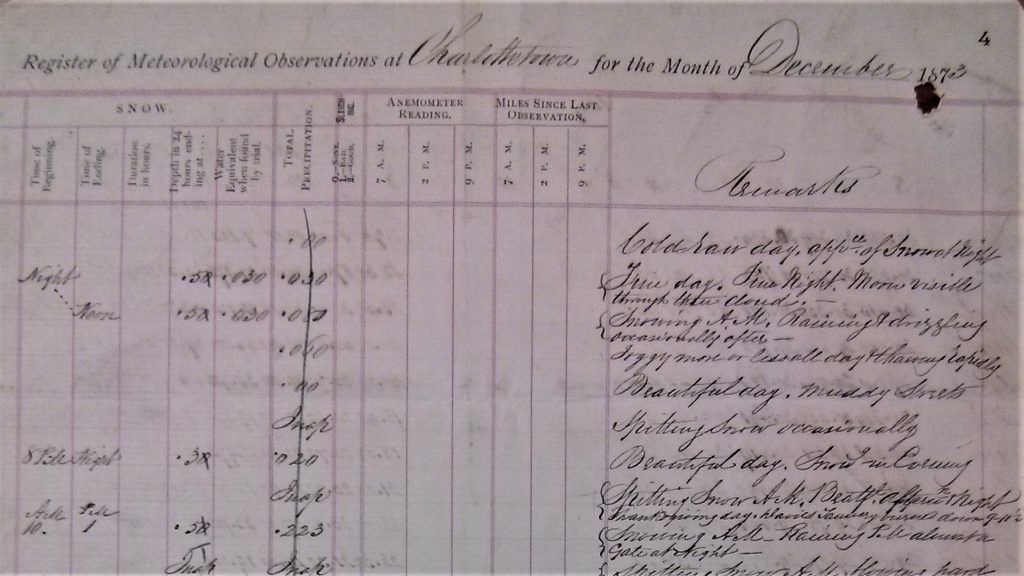 4
Register of Meteorological Observations at Charlottetown for the Month of December 1873
SNOW.
Time of Beginning.
Time of Ending.
Duration in hours.
Depth in 24 hours ending at ....
Water Equivalent when found by trial.
TOTAL PRECIPITATION.
ANEMOMETER READING.
7 A. M.
2 P. M.
9 P. M.
MILES SINCE LAST OBSERVATION.
7 A. M.
2 P. M.
9 P. M.
Remarks
.00 Cold raw day. appce of Snow at Night
Night .030 .030 Fine day. Fine Night. Moon visible
through thin cloud. —
Noon .030 Snowing A.M. Raining & drizzling
occasionally after —
Foggy more or less all day & thawing rapidly
.00 Beautiful day. muddy Streets
Inap Spitting Snow occasionally
8 P.M. Night .020 Beautiful day. Snow in Evening
Inap Spitting Snow A.M. Night
Thanksgiving day. burned down
A.M. 10. P.M. 1 .223 Snowing A.M. Raining P.M. almost a
Gale at Night —
Inap Inap Spitting Snow A.M. hard